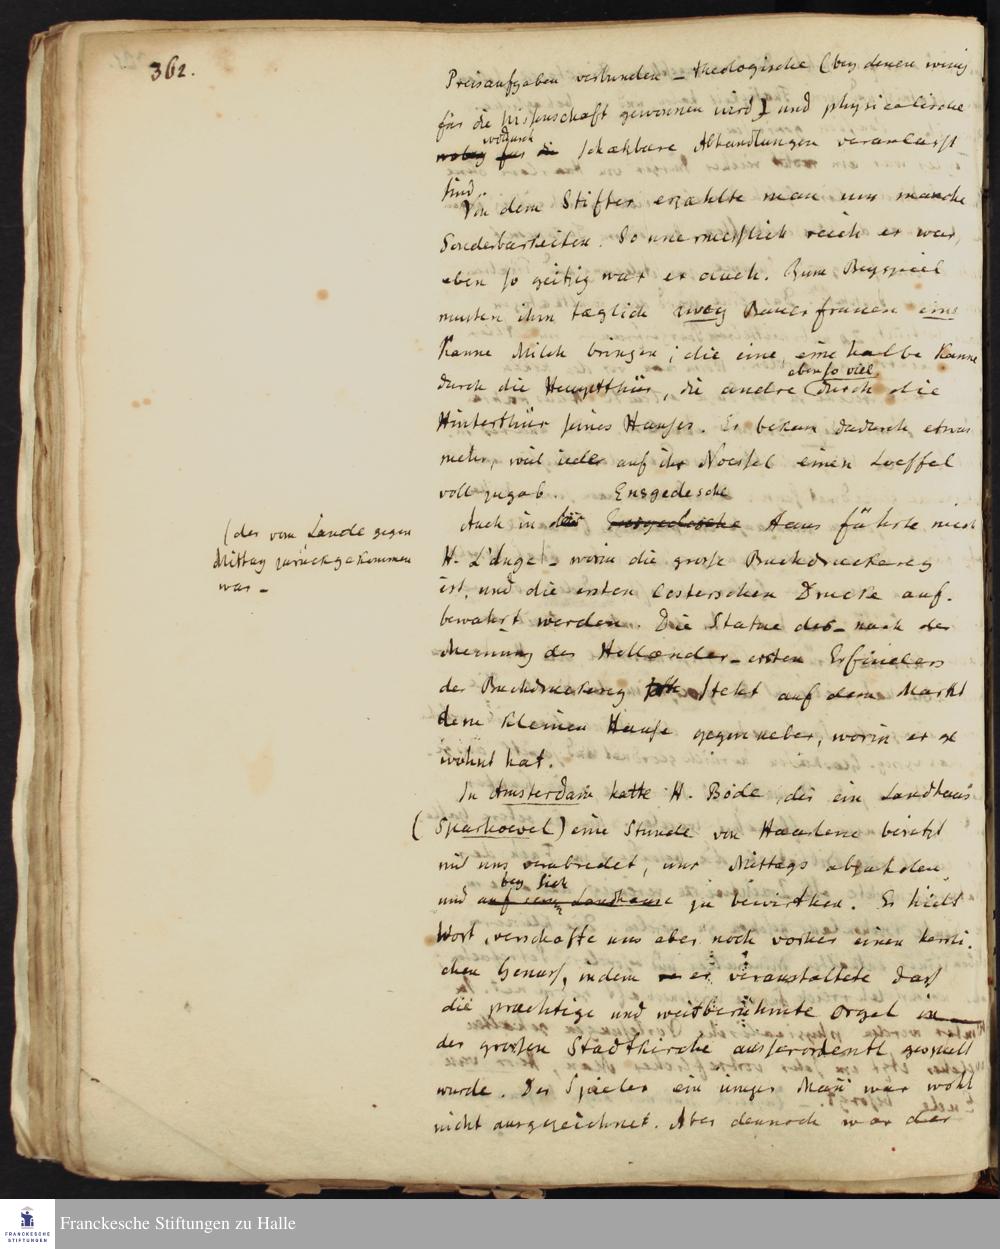 362.
Preisaufgaben verbunden – theologische (bey denen wenig
für die Wissenschaft gewonnen wird) und physicalische
wobey für die wodurch schäzbare Abhandlungen veranlasst
sind.
Von dem Stifter erzæhlte man uns manche
Sonderbarkeiten. So unermesslich reich er war,
eben so geitzig war er auch. Zum Beyspiel
musten ihm tæglich zwey Bauerfrauen eine
Kanne Milch bringen; die eine, eine halbe Kanne
durch die Hauptthür, die andre eben so viel durch die
Hinterthür seines Hauses. Er bekam dadurch etwas
mehr, weil jeder auf ihr Noessel einen Loeffel
voll zugab.
Auch in das Ensgedesche Haus führte mich
H. L'Ange – worin die grosse Buchdruckerey
(der vom Lande gegen
Mittag zurückgekommen
war –
ist, und die ersten Costerschen Drucke auf-
bewahrt werden. Die Statue des – nach der
Meinung der Hollænder – ersten Erfinders
der Buchdruckerey steht auf dem Markt
dem kleinen Hause gegenueber, worin er ge
wohnt hat.
In Amsterdam hatte H. Bode, der ein Landhaus
(Sparhoevel) eine Stunde von Haarlem besitzt
mit uns verabredet, uns Mittags abzuholen,
und auf sein Landhause bey sich zu bewirthen. Er hielt
Wort, verschafte uns aber noch vorher einen herrli-
chen Genuss, indem er veranstaltete dass
die præchtige und weitberühmte Orgel in
der grossen Stadtkirche ausserordentl. gespielt
wurde. Der Spieler ein junger Mañ war wohl
nicht ausgezeichnet. Aber dennoch war der
Franckesche Stiftungen zu Halle
FRANCKESCHE
STIFTUNGEN